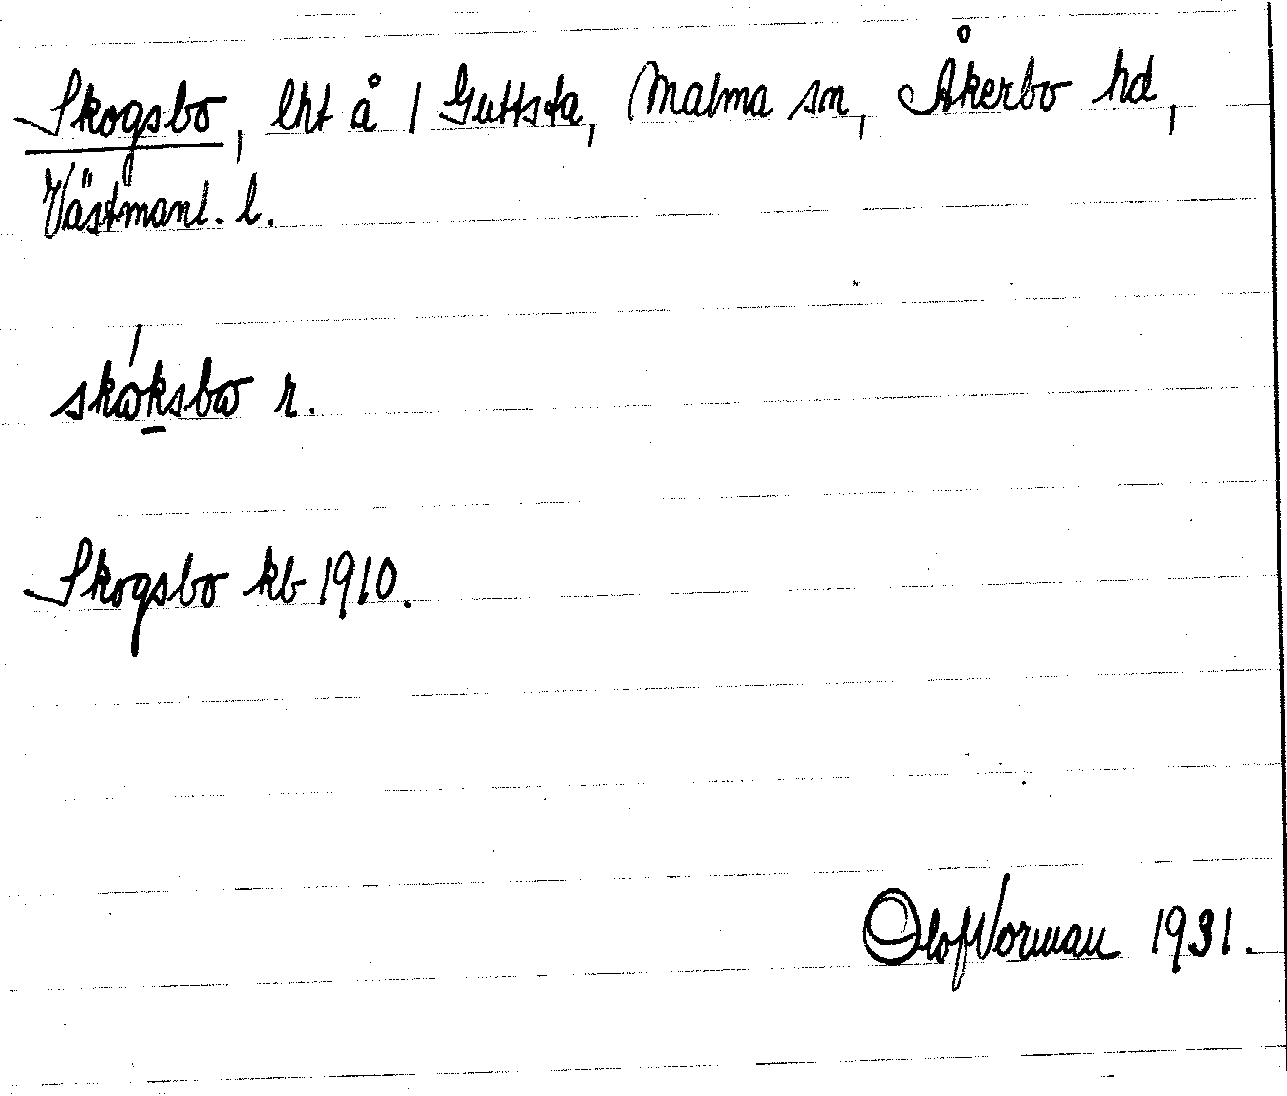 Skogsbo, lht å 1 Guttsta, Malma sn, Åkerbo hd,
Västmanl. l.
skɷ́ksbɷ r.
Skogsbo kb 1910.
Olof Norman 1931.